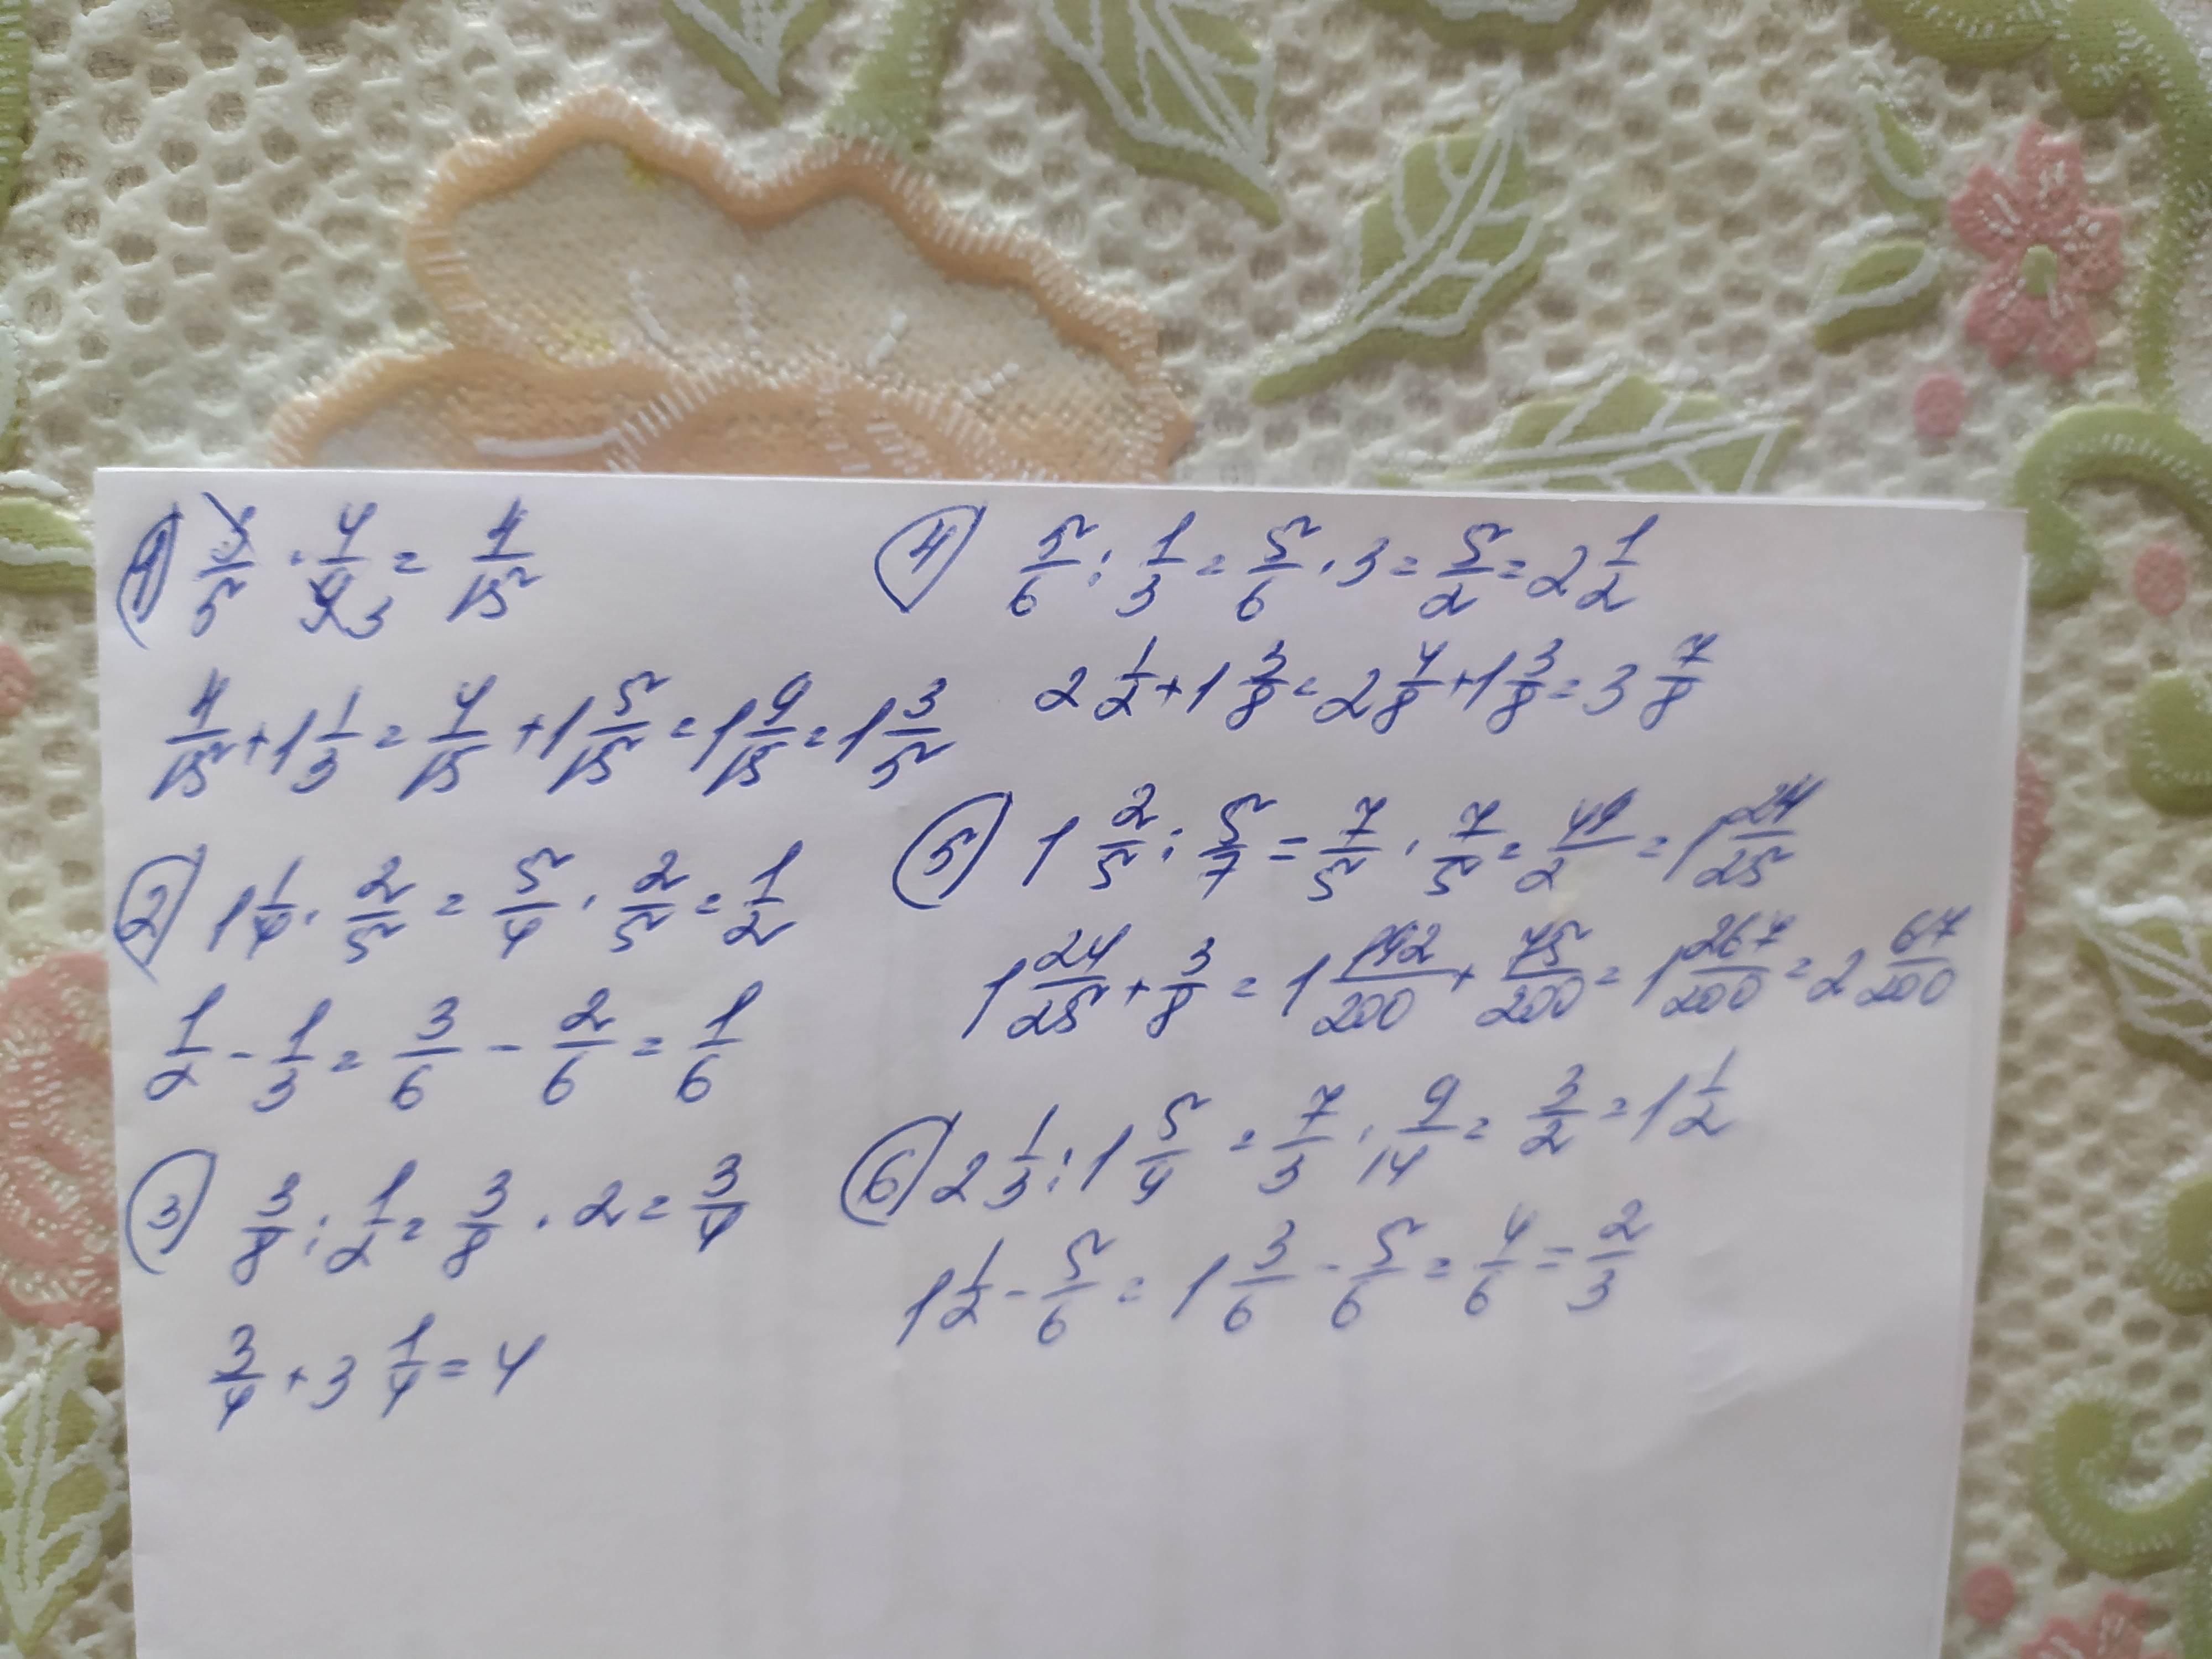 ① 3/5 · 4/9 3 = 4/15
4/15 + 1 1/3 = 4/15 + 1 5/15 = 1 9/15 = 1 3/5
② 1 1/4 · 2/5 = 5/4 · 2/5 = 1/2
1/2 - 1/3 = 3/6 - 2/6 = 1/6
③ 3/8 : 1/2 = 3/8 · 2 = 3/4
3/4 + 3 1/4 = 4
④ 5/6 : 1/3 = 5/6 · 3 = 5/2 = 2 1/2
2 1/2 + 1 3/8 = 2 4/8 + 1 3/8 = 3 7/8
⑤ 1 2/5 : 5/7 = 7/5 · 7/5 = 49/2 = 1 24/25
1 24/25 + 3/8 = 1 192/200 + 75/200 = 1 267/200 = 2 67/200
⑥ 2 1/3 : 1 5/9 = 7/3 · 9/14 = 3/2 = 1 1/2
1 1/2 - 5/6 = 1 3/6 - 5/6 = 4/6 = 2/3